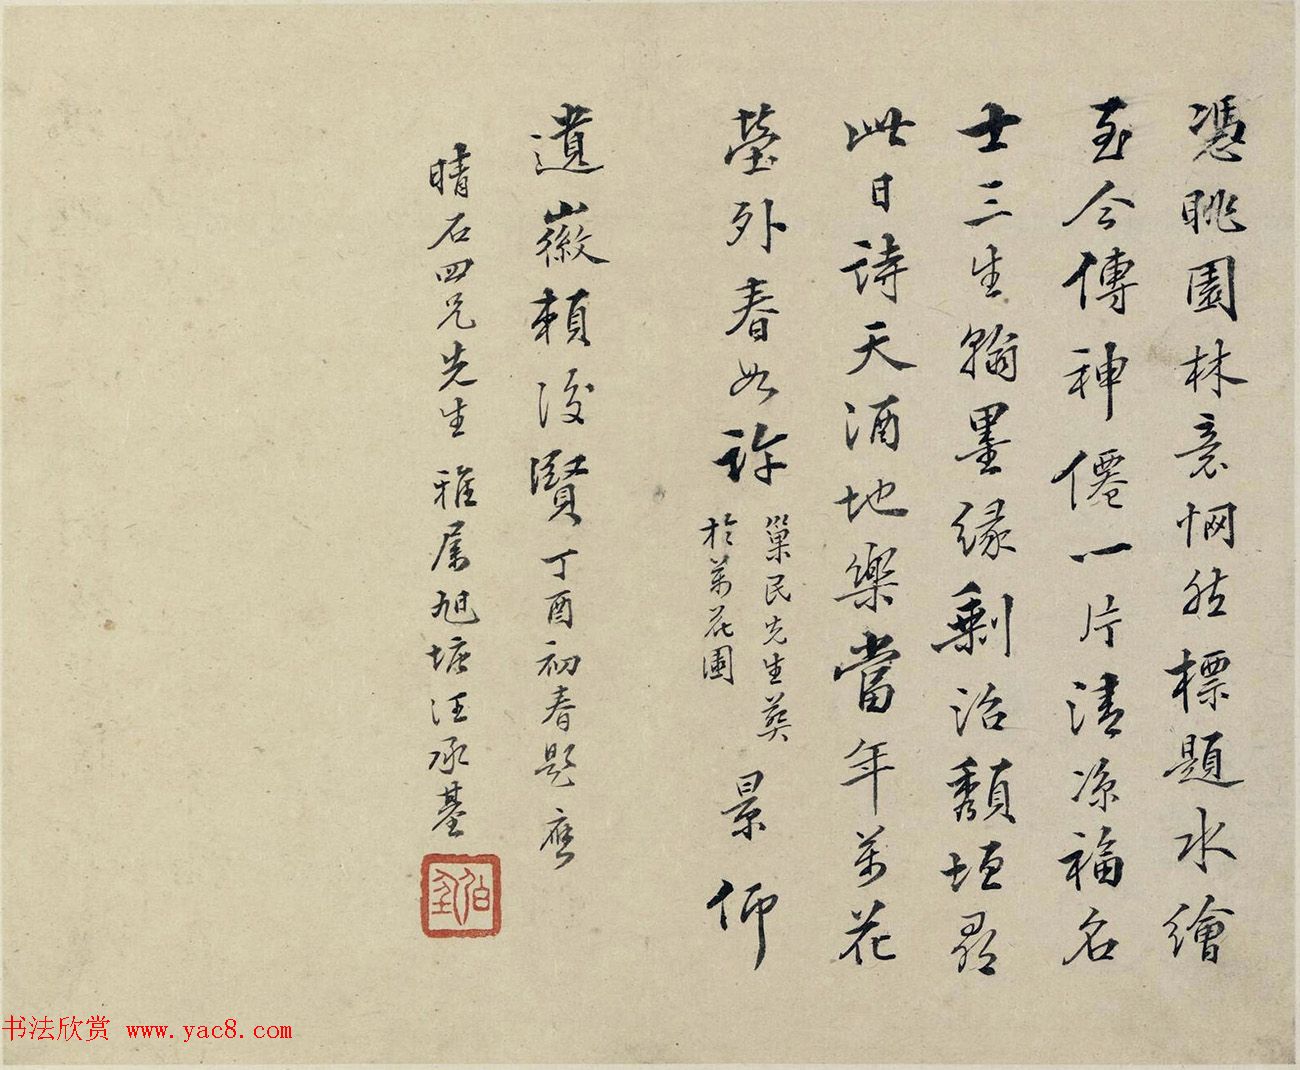 憑眺園林意惘然標題水繪
至今傳神僊一片清涼福名
士三生翰墨緣剩沼頹垣尋
此日詩天酒地樂當年萬花
塋外春如許
巢民先生葬
於萬花園
景仰
遺徽賴後賢丁酉初春題應
晴石四兄先生雅屬旭塘汪承基
书法欣赏 www.yac8.com